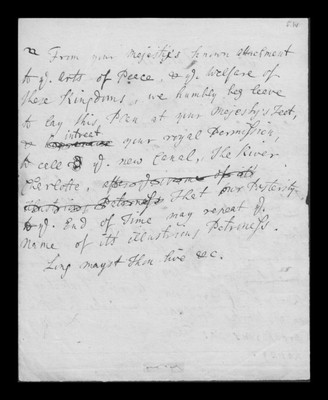 From your Majesty's known attachment
to ye. Arts of Peace, & ye. Welfare of
these Kingdoms, we humbly beg leave
to lay this Plea at your Majesty's Feet,
& intreat your royal Permission,
to call ye. new Canal, The River
Charlotte, that our Posterity
to ye. End of Time may repeat ye.
Name of its illustrious Patroness.
Long mayst Thou live &c.